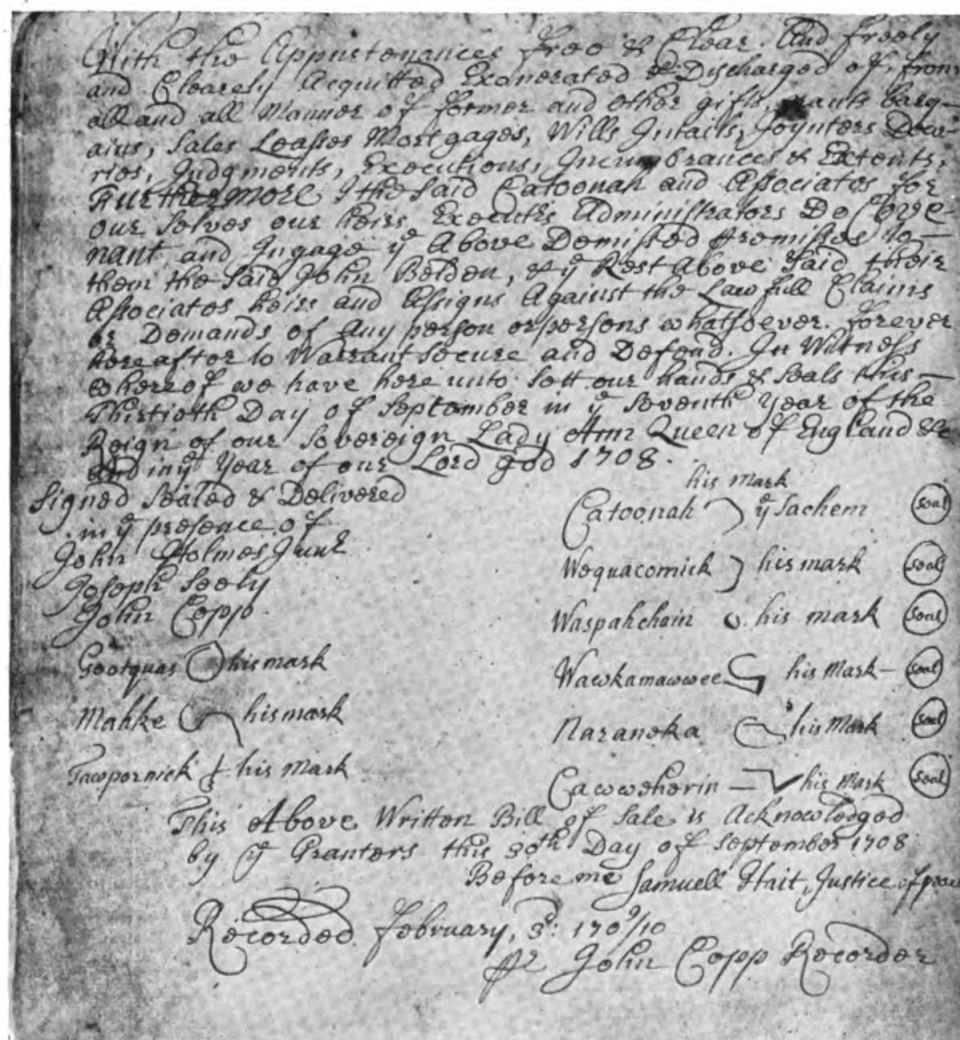 With the Appurtenances free & Clear. And freely
and Clearely Acquitted Exonerated & Discharged of, from
all and all Manner of former and other gifts, barq-
ains, Sales Leasses Mortgages, Wills Intails, Joynters Dow-
ries, Judgments, Executions, Incumbrances & Extents,
Furthermore I the Said Catoonah and Associates for
our Selves our heirs Administrators Do Cove-
nant, and Ingage yͤ Above Demissed premisses to —
them the Said John Belden, & yͤ Rest Above Said their
Associates heirs and Assigns Against the Lawfull Claims
or Demands of Any person or persons whatsoever. forever
hereafter to Warrant Secure and Defend. In Witness
whereof we have here unto Sett our hands & Seals this —
Thirtieth Day of September in yͤ Seventh Year of the
Reign of our Sovereign Lady Ann Queen of England &c
And in yͤ Year of our Lord god 1708.
Signed Sealed & Delivered
in yͤ presence of
John Holmes Junʳ
Joseph Seely
John Copp
his Mark
Catoonah yͤ Sachem Seal
Wequacomick his mark Seal
Waspahchain his mark Seal
Gootquas his mark
Wawkamawwee his Mark — Seal
Mahke his mark
Naraneka his Mark Seal
Tawpornick his Mark
Cawwehorin his Mark Seal
This Above Written Bill of Sale is Acknowledged
by yͤ Granters this 30th Day of September 1708
Before me Samuell Hait, Justice of peace
Recorded February, 3ᵈ: 170 9/10
Pr John Copp Recorder